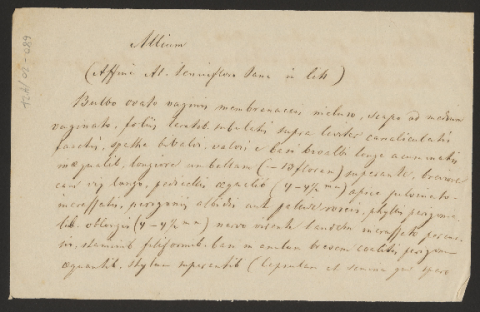 Allium
(Affine A. tenuiflor. Tenn in litt)
Bulbo ovato vaginis membranaceis incluso, scapo ad medium
vaginato, foliis teretib. subulatis supra leviter canaliculatis
farctis, spatha bivalvi valvis e basi longe acuminatis
inaequalib. longiore umbellam (–13 floram) superante, breviore
pedicellis aequalib (4–4½ mm) apice
incrassatis, perigoniis albidis aut pallide roseis, phyllis perigonia-
lib. oblongis (4–4½ mm) nervo virente tandem incrassato percur-
sis, staminib. filiformib. basi in annulum brevem coalitis perigon.
aequantib. stylum superantib (capsulam et semina